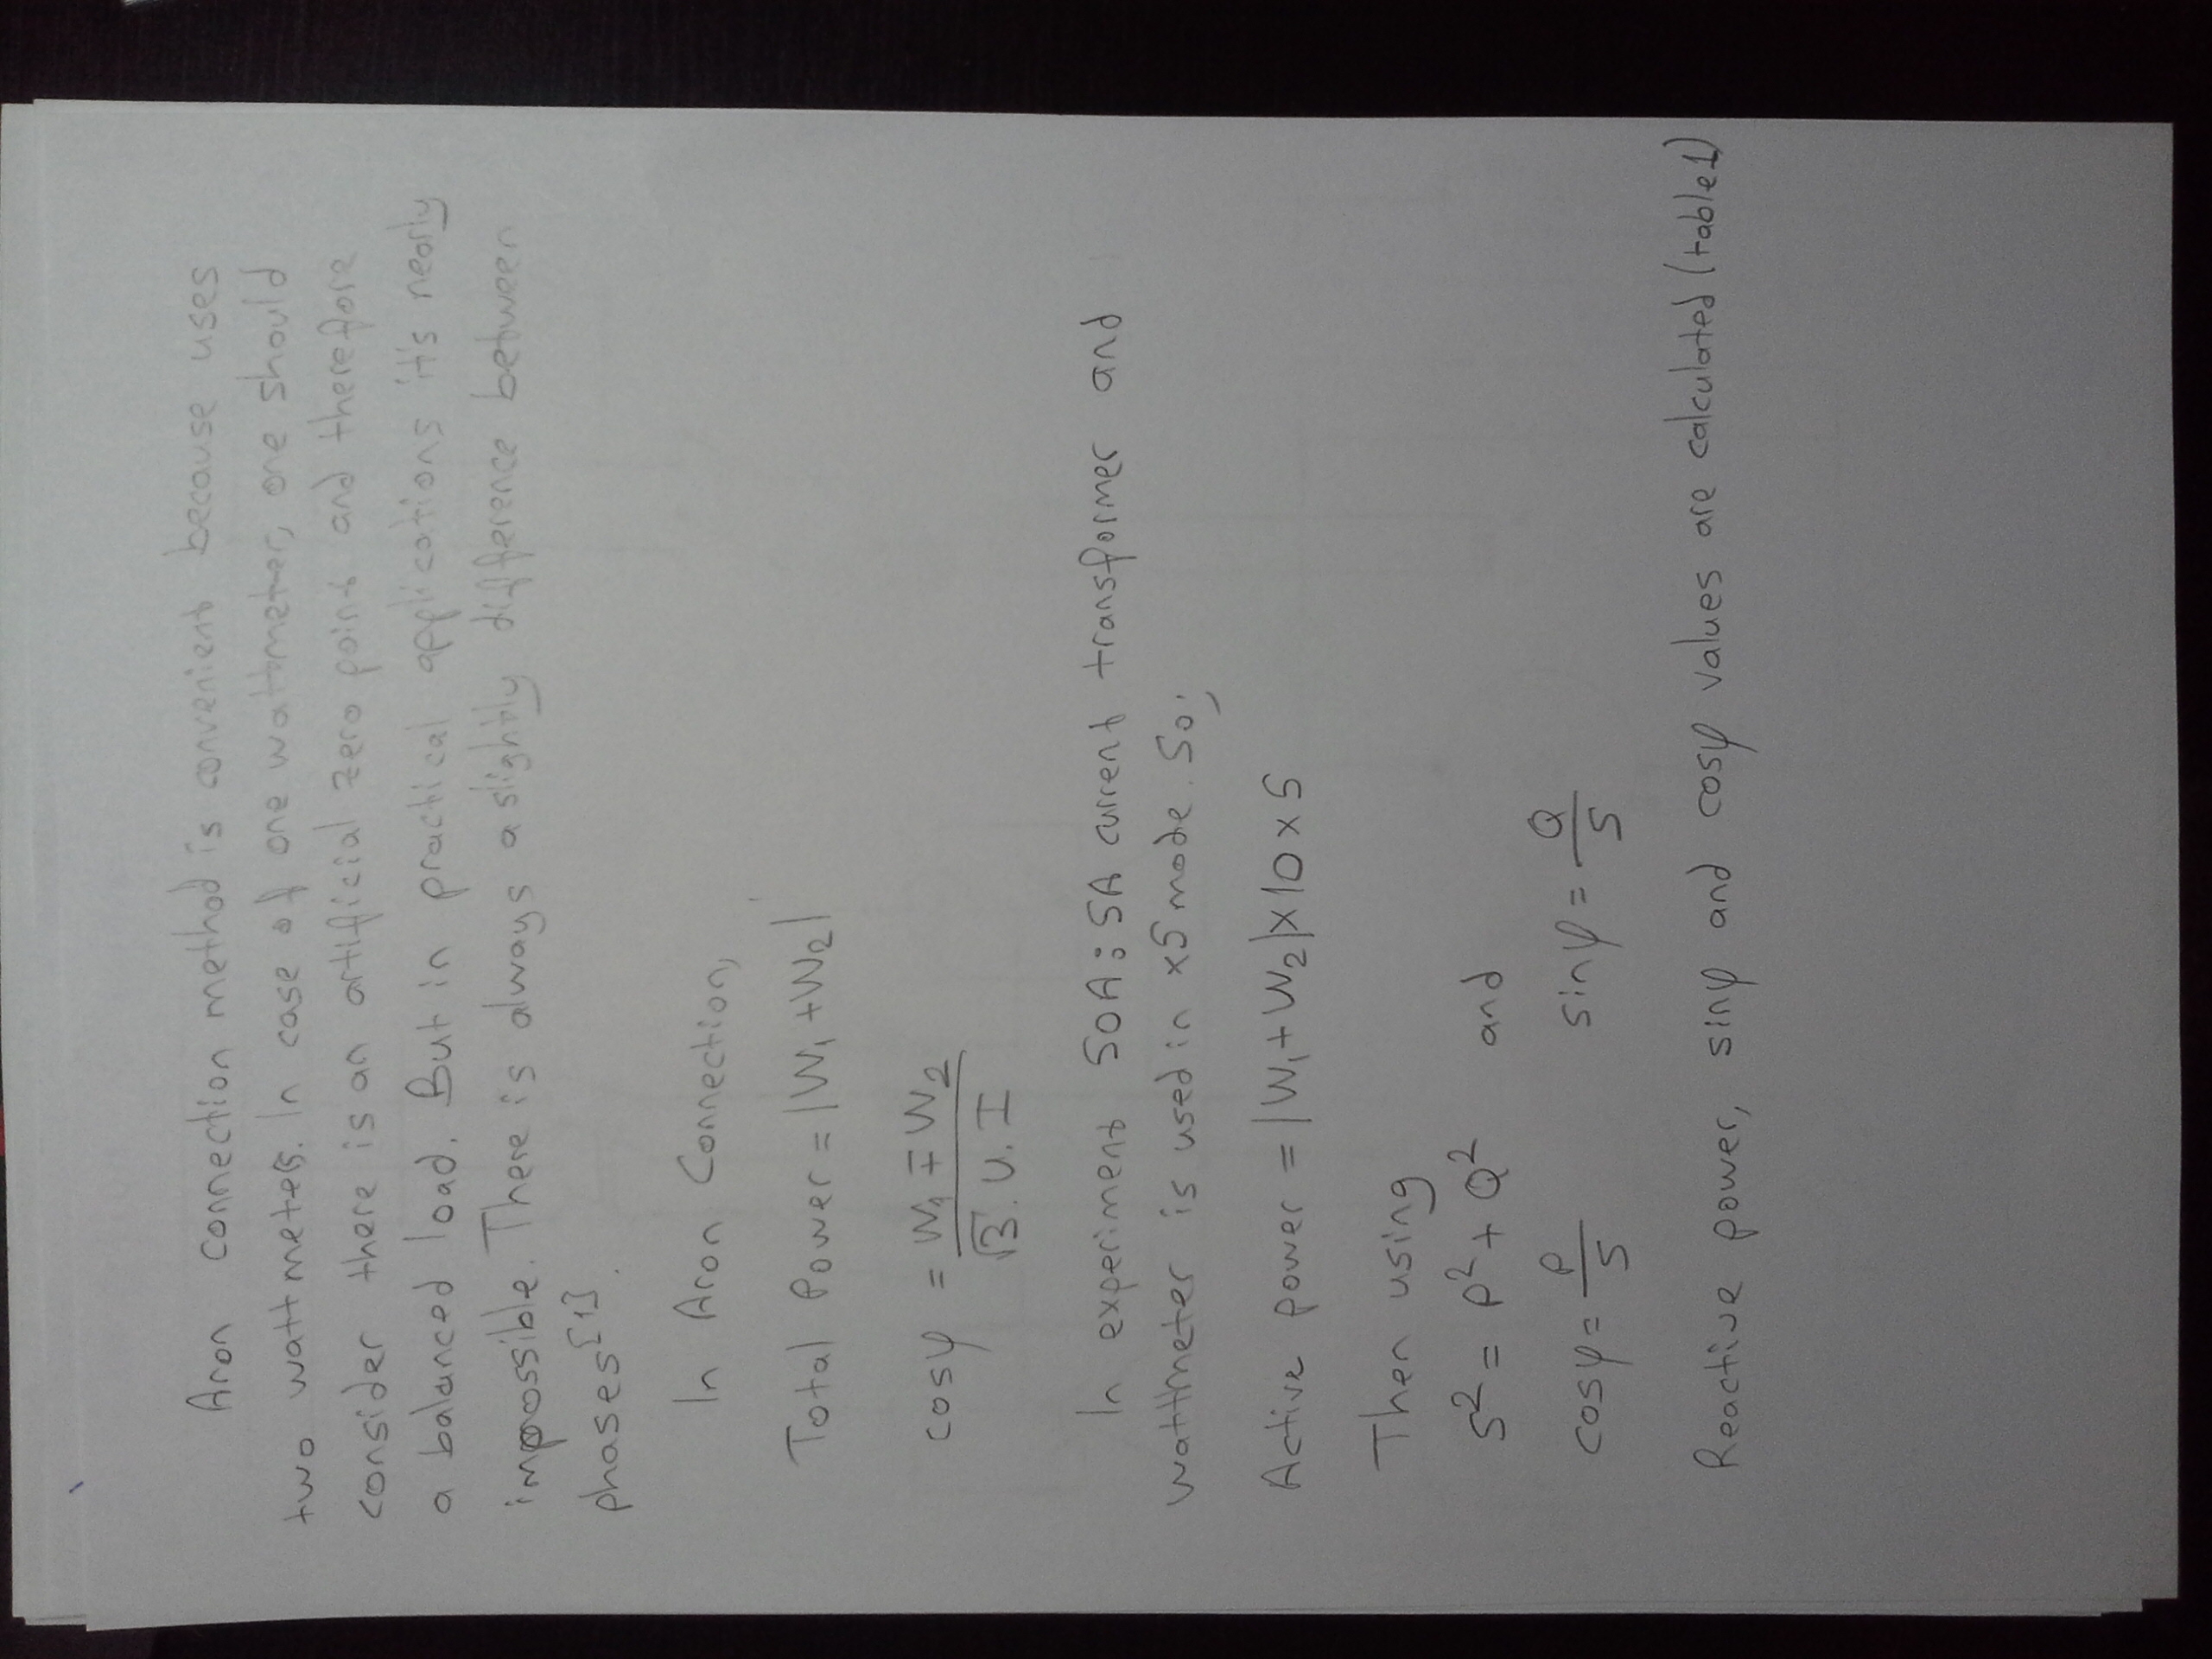 Aron connection method is convenient because uses
two wattmeters. In case of one wattmeter, one should
consider there is an artificial zero point and therefore
a balanced load. But in practical applications it's nearly
impossible. There is always a slightly difference between
phases[1].
In Aron Connection,
Total Power = |W₁ + W₂|
cosφ = W₁ ∓ W₂ / √3 . U . I
In experiment 50A:5A current transformer and
wattmeter is used in x5 mode. So;
Active power = |W₁ + W₂| x 10 x 5
Then using
S² = P² + Q² and
cosφ = P/S sinφ = Q/S
Reactive power, sinφ and cosφ values are calculated (table1)